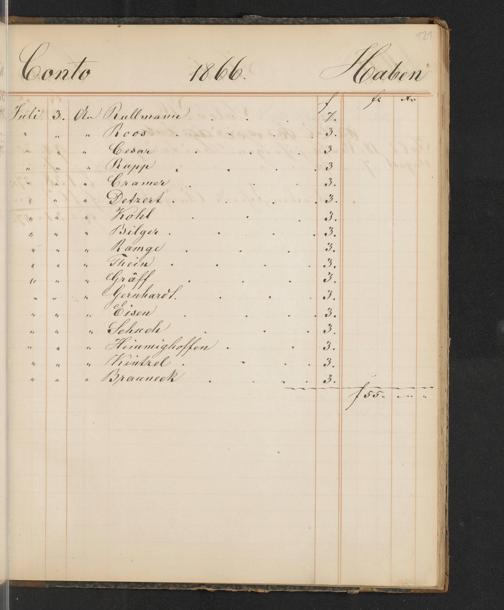 121
Conto 1866. Haben
f fl xr
Juli 3. An Rullmann . . 7.
" " " Roos . . . 3.
" " " Cesar . . . 3.
" " " Rupp . . . . 3
" " " Cramer . . . 3.
" " " Detzert . . . 3.
" " " Kohl . . . 3.
" " " Bilger . . . . 3.
" " " Ramge . . . . 3.
" " " Thein . . . . 3.
" " " Gräff . . . . 3.
" " " Gernhardt . . . 3.
" " " Eisen . . . . 3.
" " " Schuch . . . . 3.
" " " Himmighoffen . . . 3.
" " " Kintzel . . . . 3.
" " " Brauneck . . . . 3.
f 55 " "